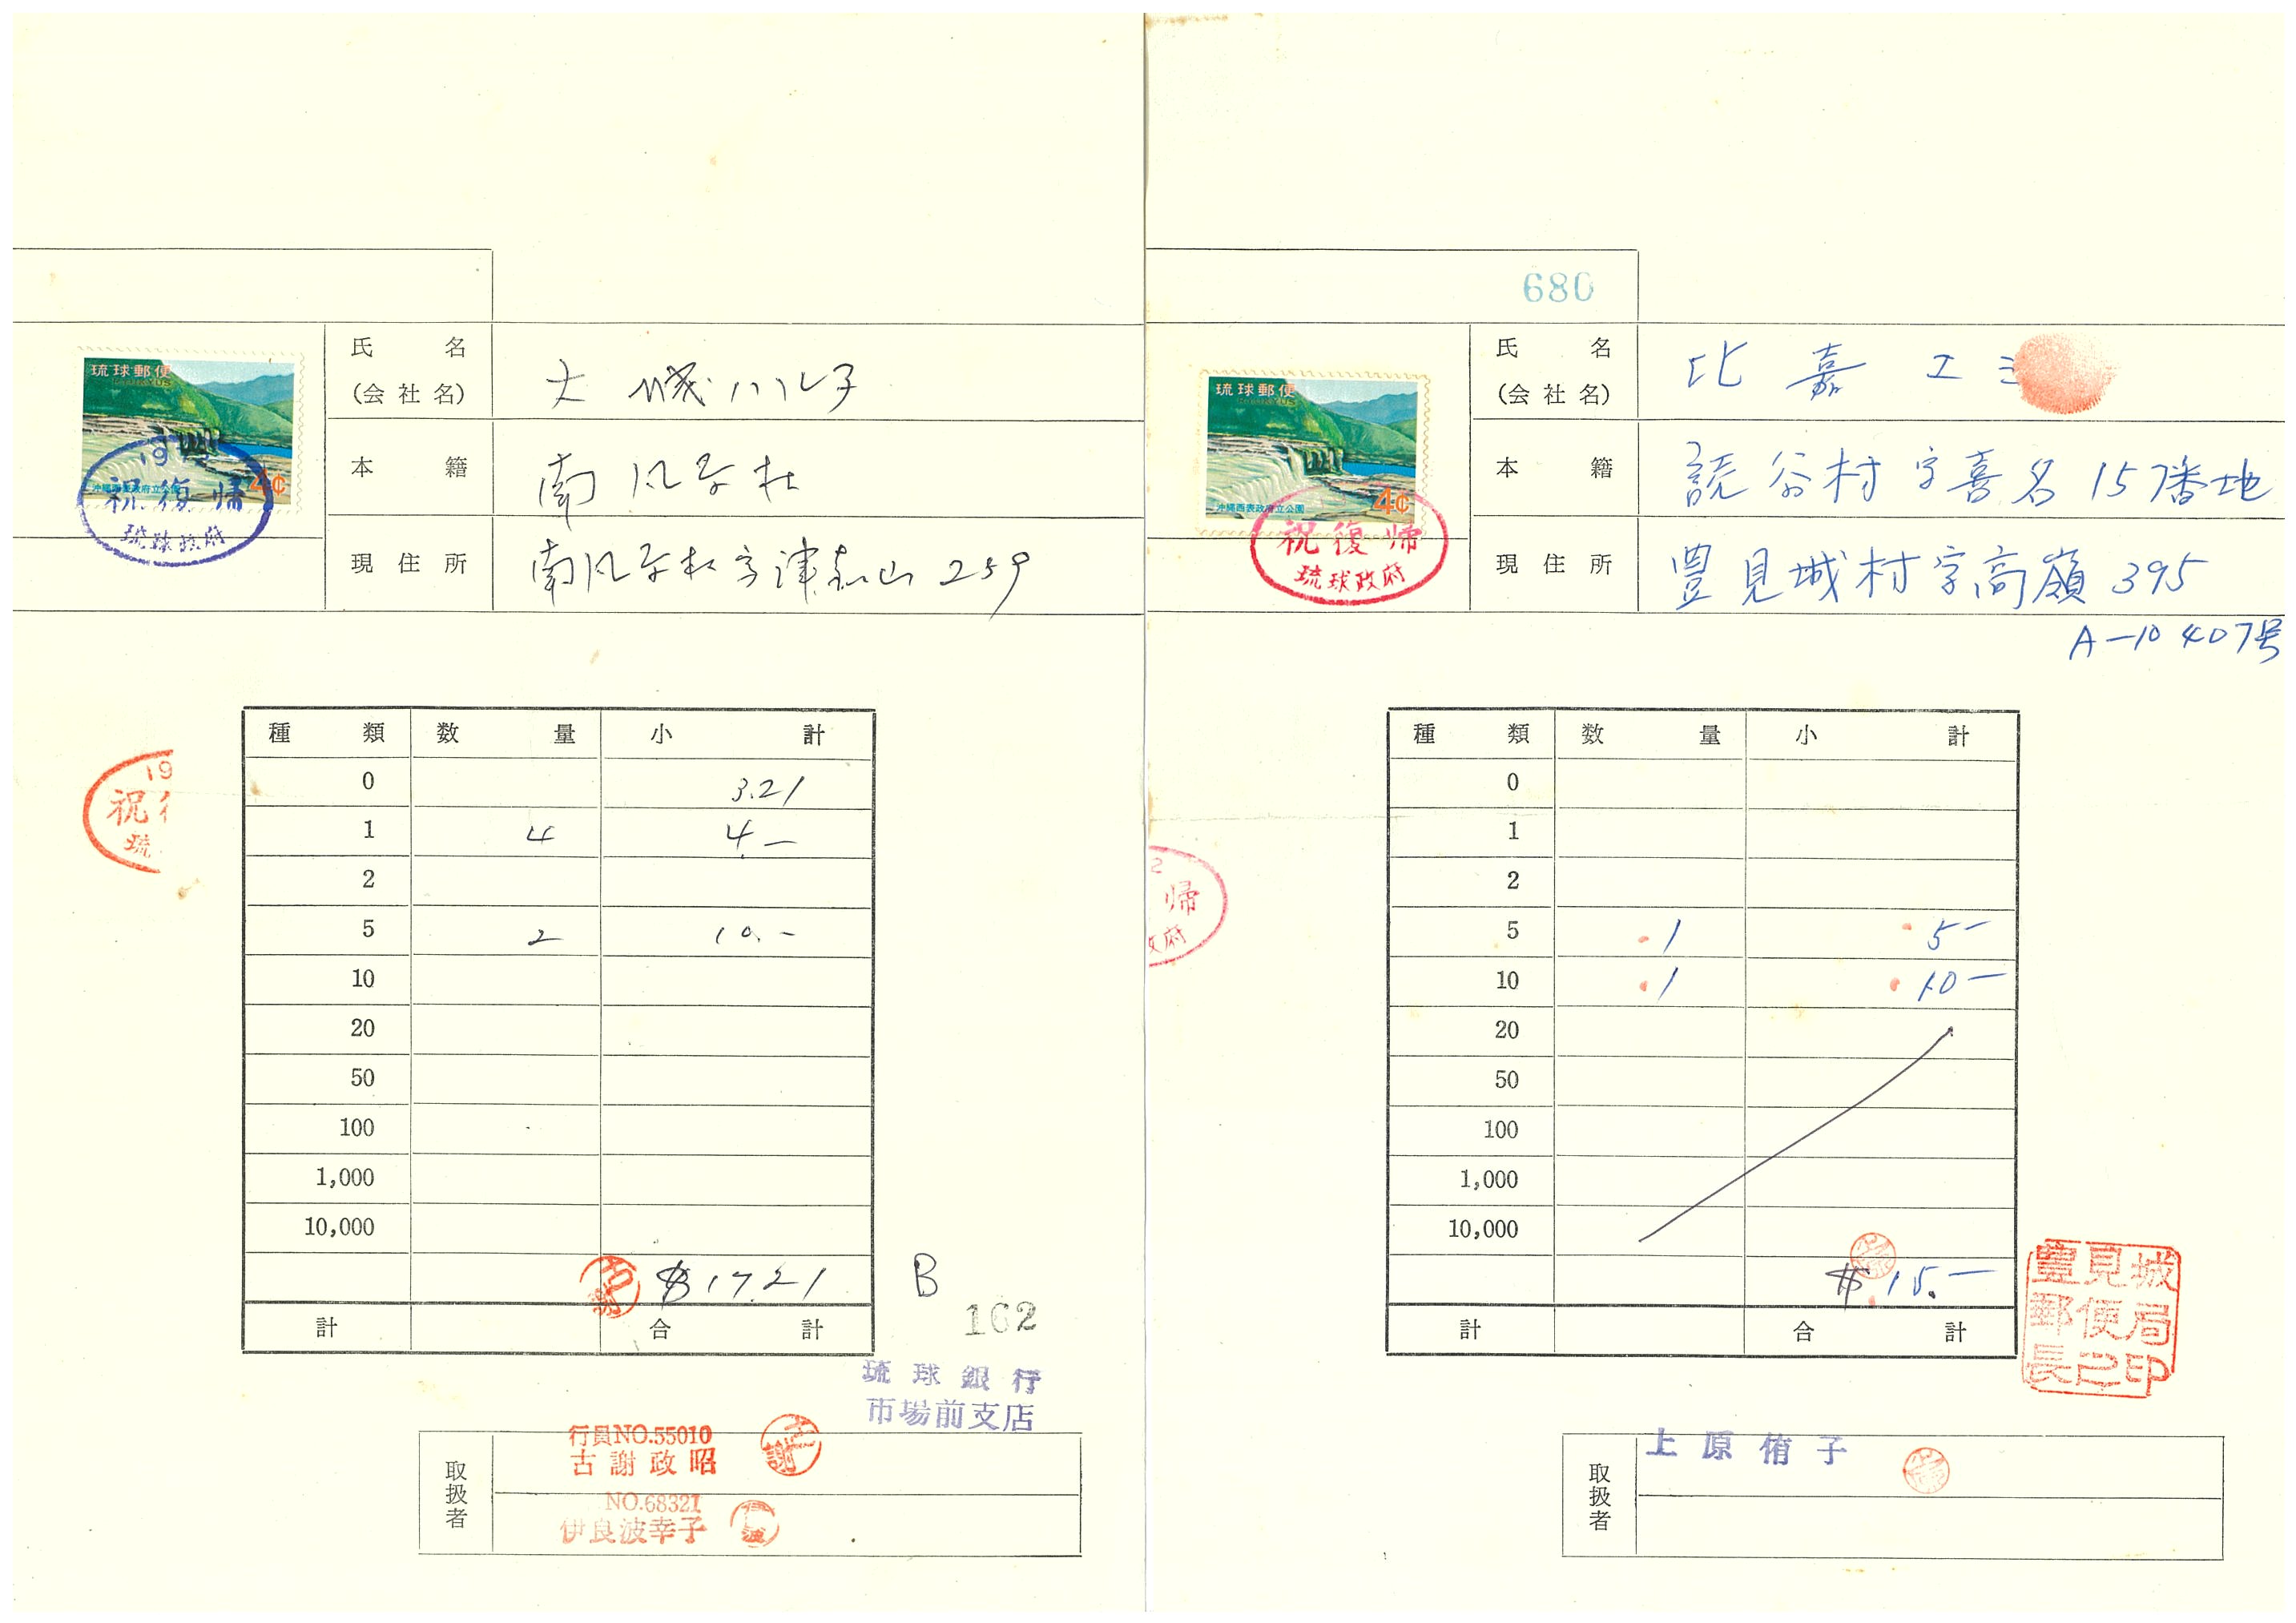 氏 名
(会社名)
大城ハル子
本 籍
南風原村
現住所
南風原村字津嘉山 259
琉球郵便
RYUKYUS
沖縄西表政府立公園
4¢
19
祝復帰
琉球政府
19
祝
琉
種 類 数 量 小 計
0 3.21
1 4 4 —
2
5 2 10. —
10
20
50
100
1,000
10,000
$17.21
B
計 合 計
162
琉球銀行
市場前支店
取扱者
行員NO.55010
古謝政昭
NO.68321
伊良波幸子
680
氏 名
(会社名)
比嘉 エミ
本 籍
読谷村字喜名157番地
現住所
豊見城村字高嶺395
A-10 407号
琉球郵便
RYUKYUS
沖縄西表政府立公園
4¢
祝復帰
琉球政府
2
帰
府
種 類 数 量 小 計
0
1
2
5 1 5 —
10 1 10 —
20
50
100
1,000
10,000
$15. —
計 合 計
豊見城
郵便局
長之印
取扱者
上原侑子